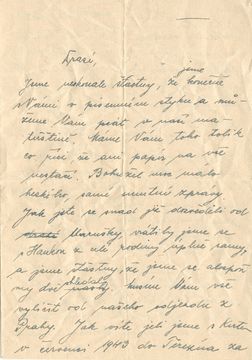 Drazí,
jsme
Jsme neskonale šťastny, že konečně
s Vámi v písemném styku a mů-
žeme Vám psát v naší ma-
teřštině. Máme Vám toho tolik
co říci, že ani papír na vše
nestačí. Bohužel moc málo
hezkého, samé smutné zprávy.
Jak jste se snad již dověděli od
Marušky, vrátily jsme se
s Hankou z celé rodiny úplně samy,
a jsme šťastny, že jsme se alespoň
my dvě shledaly. Musím Vám vše
vylíčit od našeho odjezdu z
Prahy. Jak víte jeli jsme s
v červenci 1943 do Terezína za